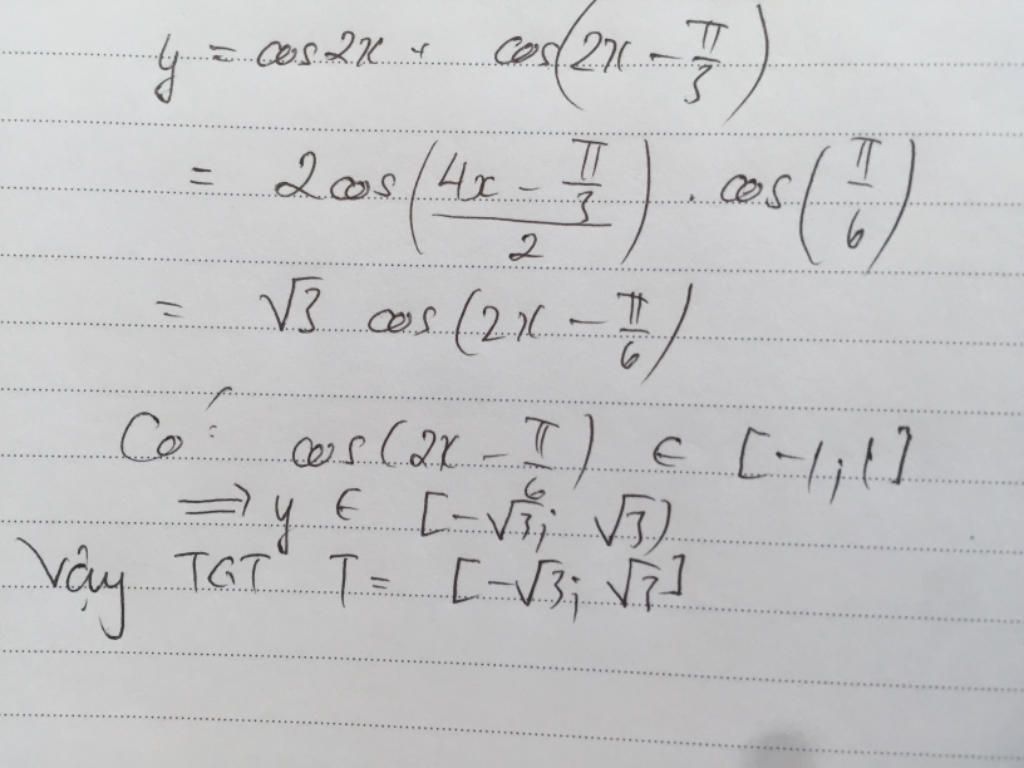 y = cos2x + cos(2x - π/3)
= 2cos((4x - π/3)/2) . cos(π/6)
= √3 cos(2x - π/6)
Có: cos(2x - π/6) ∈ [-1; 1]
⟹ y ∈ [-√3; √3]
Vậy TGT T = [-√3; √3]